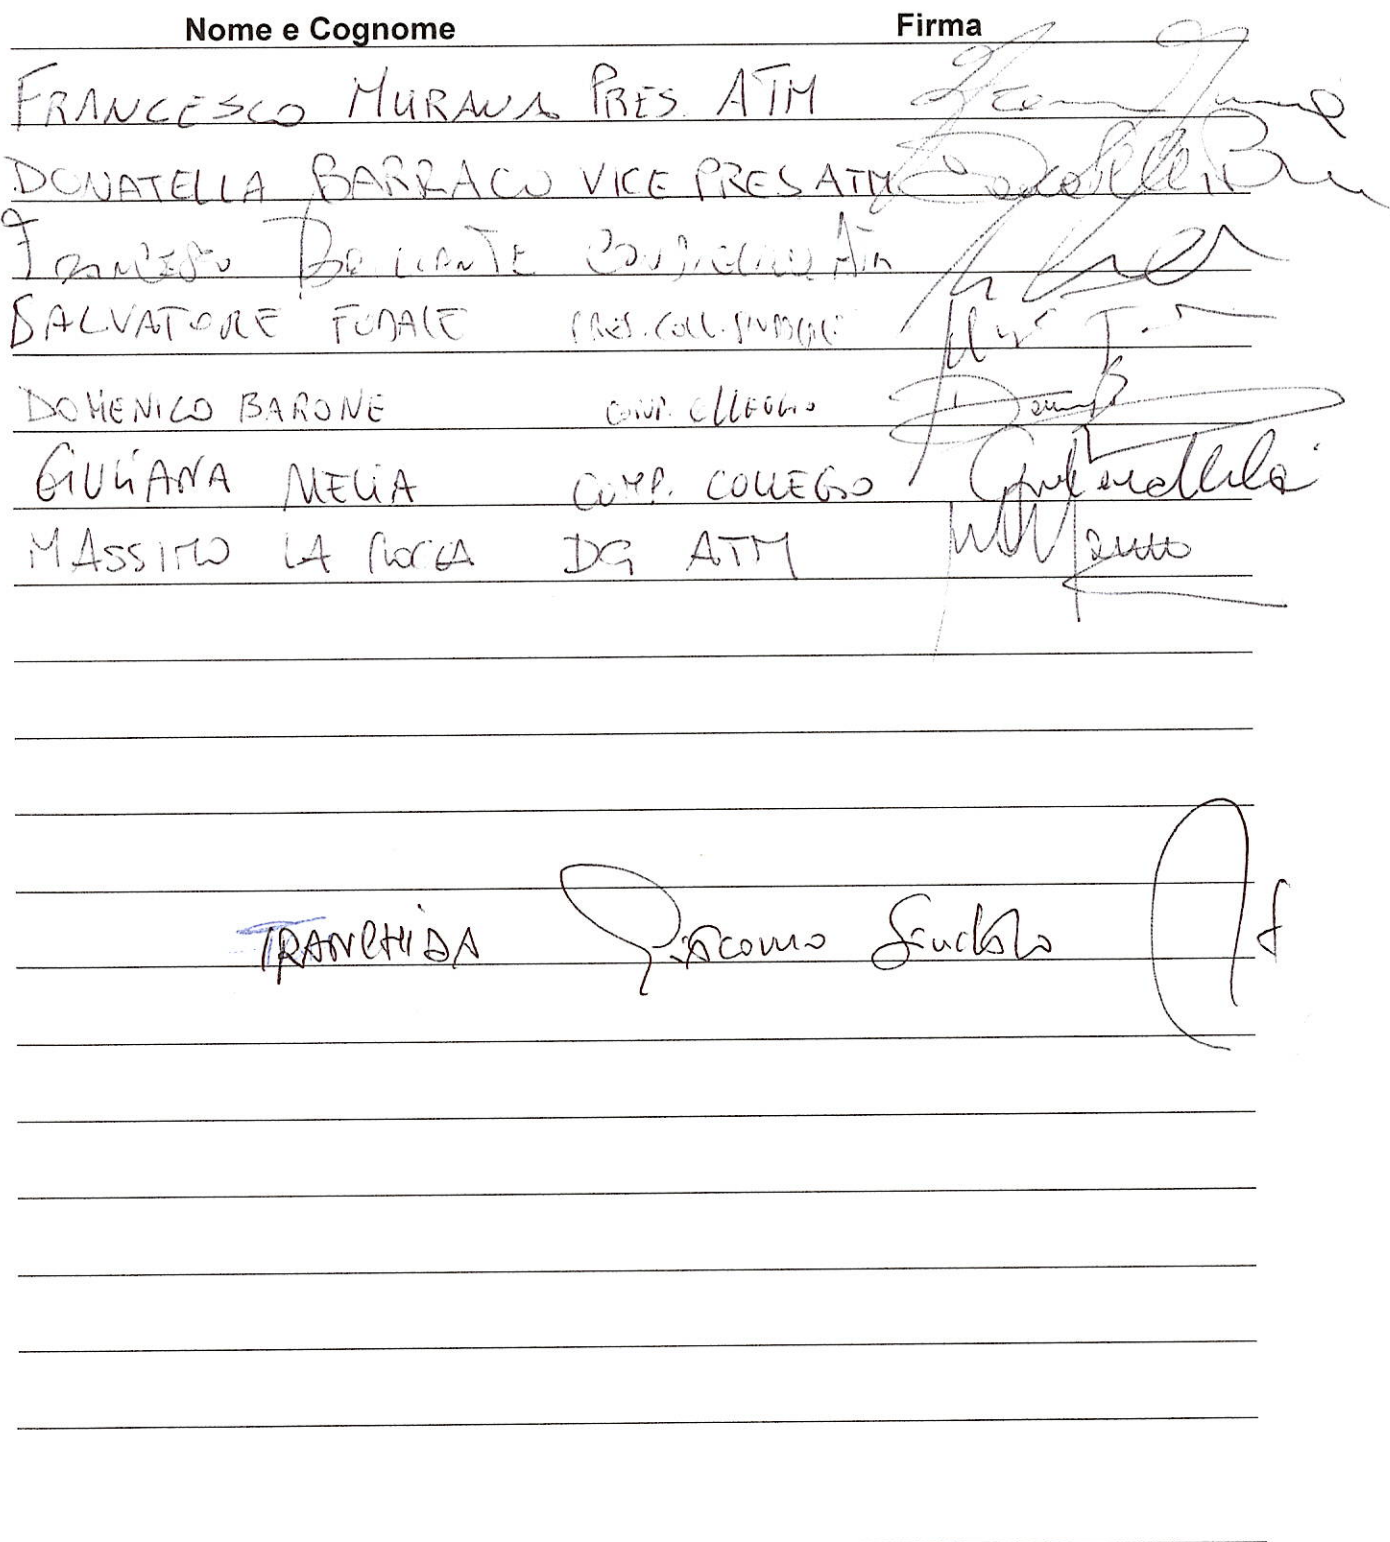 Nome e Cognome Firma
FRANCESCO MURANA PRES. ATM
DONATELLA BARRACO VICE PRES ATM Donatella B
FRANCESCO BRILLANTE CONSIGLIERE ATM
SALVATORE FODALE PRES. COLL. SINDACALE
DOMENICO BARONE COMP. COLLEGGIO
GIULIANA MELIA COMP. COLLEGIO Giuliana Melia
MASSIMO LA ROCCA DG ATM
TRANCHIDA Giacomo Sindaco